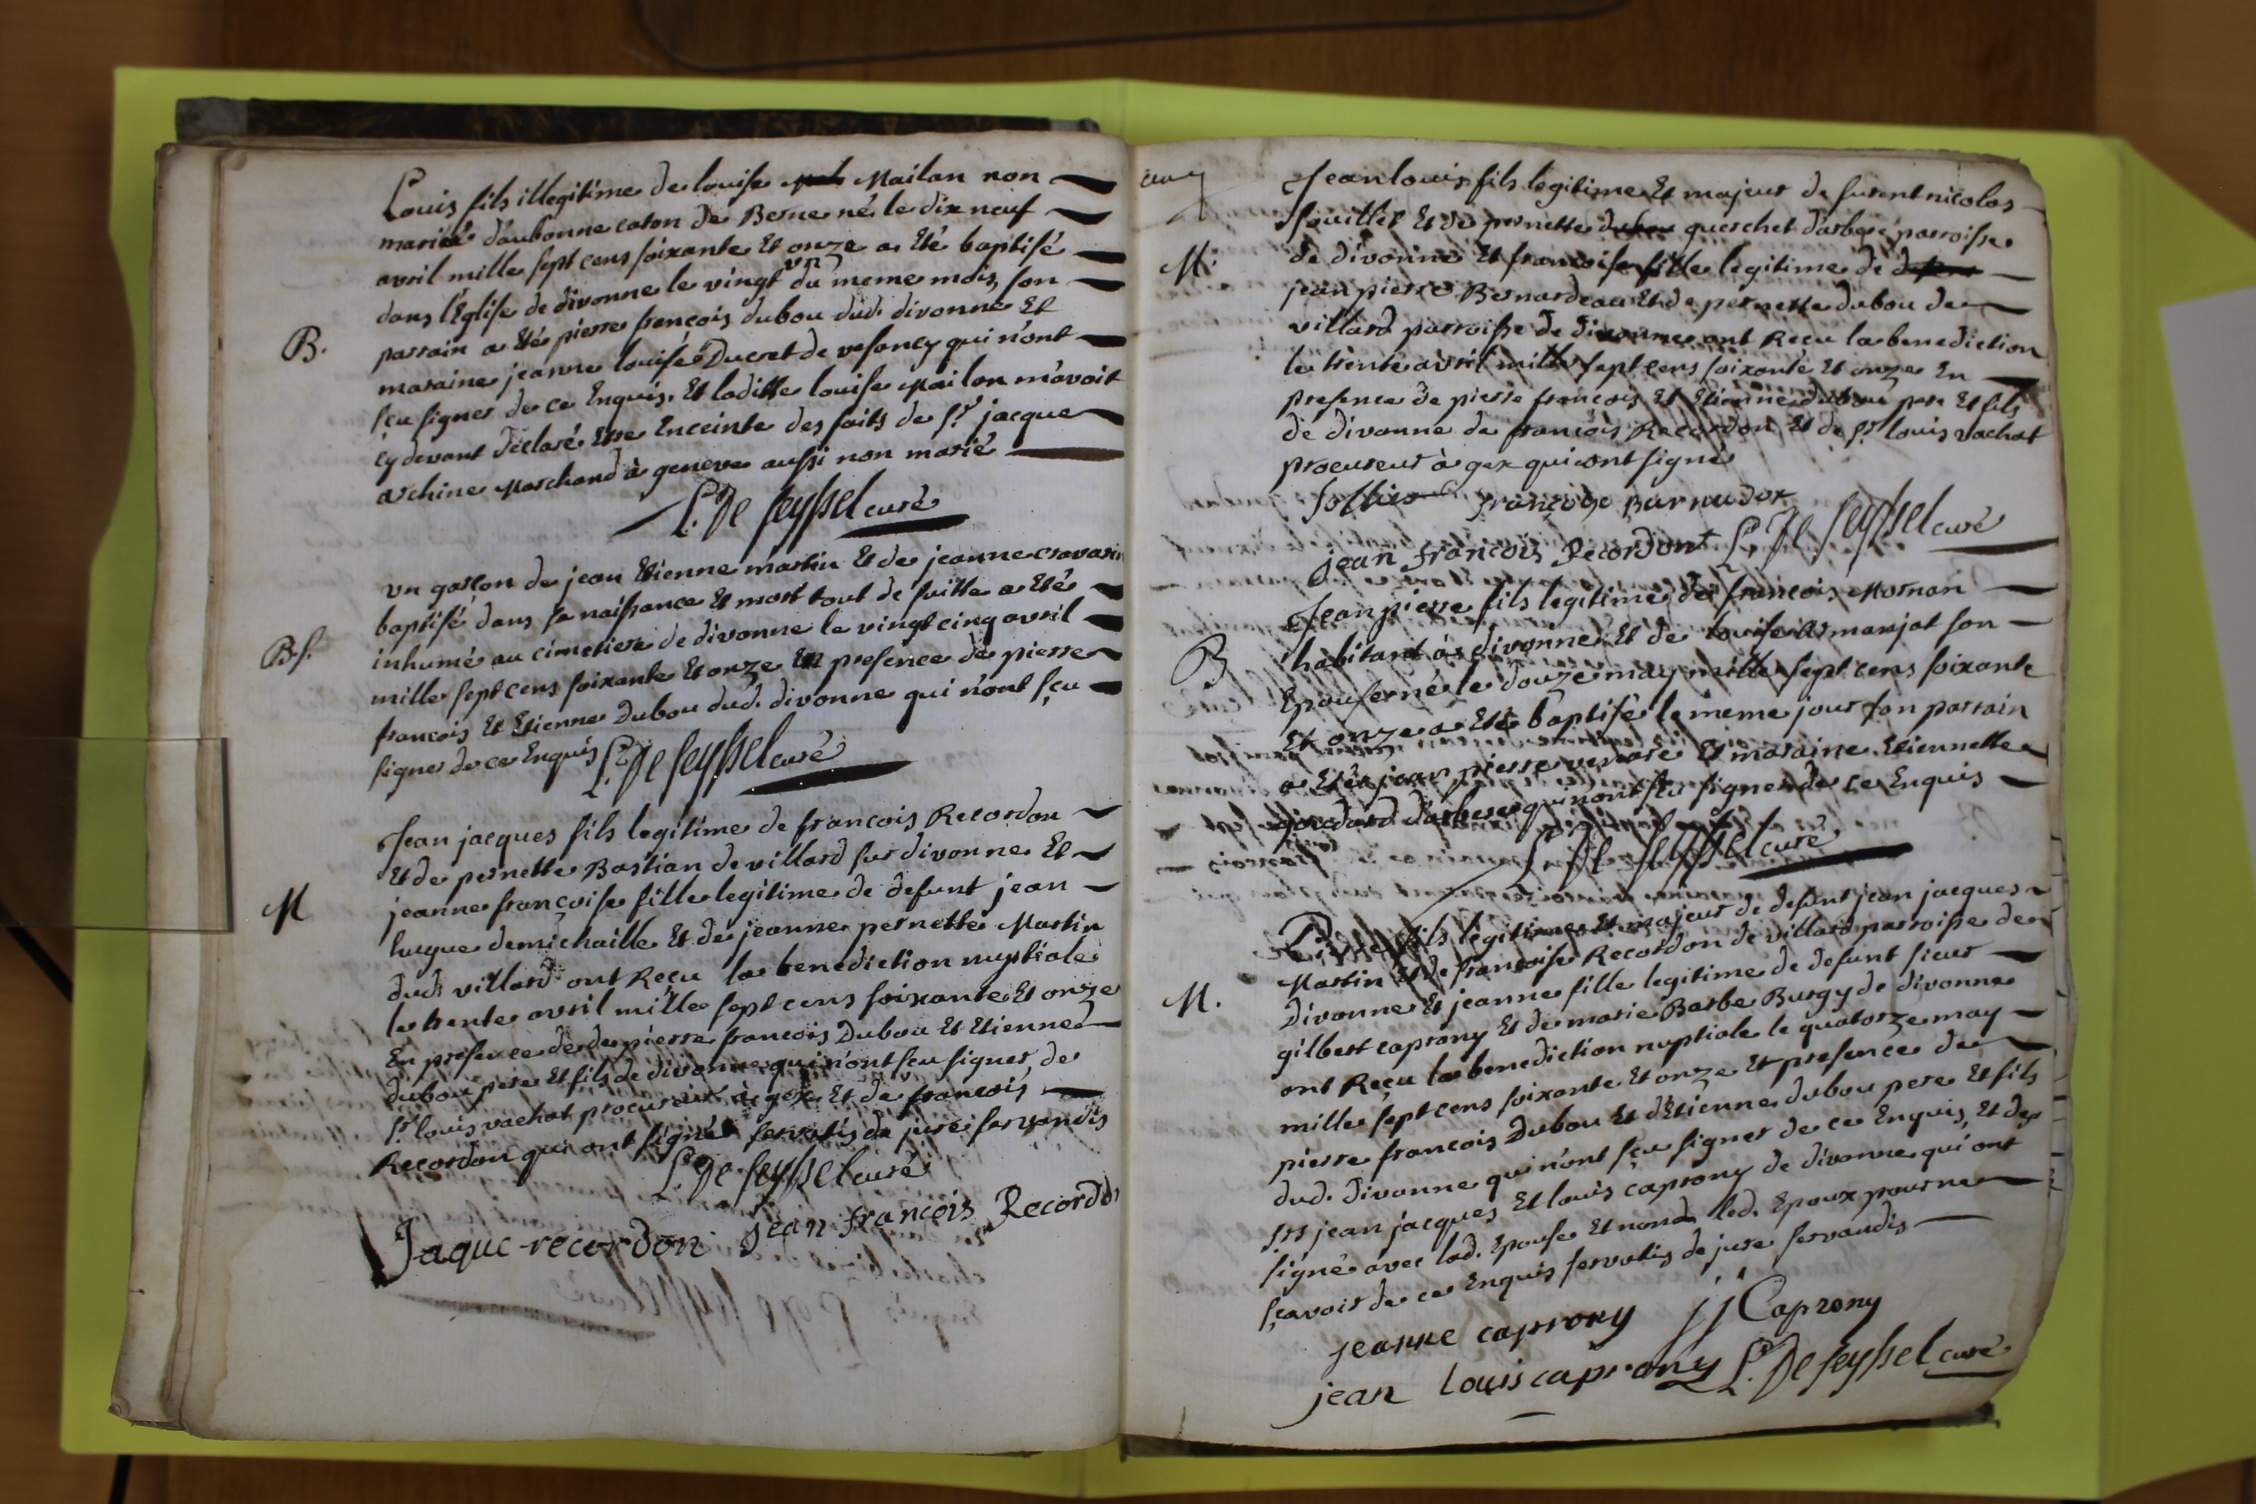 Louis fils illegitime de louise Mailan non
mariée d'aubonne caton de Berne né le dix neuf
avril mille sept cens soixante Et onze a Eté baptisé
dans l'Eglise de divonne le vingt un du meme mois, son
B.
parrain a Eté pierre françois dubou dud. divonne Et
maraine jeanne louise Ducret de vesancy qui n'ont
sçu signer de ce Enquis. Et laditte louise Mailan m'avoit
cy devant declaré Etre Enceinte des faits de Sr. jacque
archine Marchand à geneve aussi non marié
L. De Seyssel curé
un garcon de jean Etienne martin Et de jeanne cravarin
baptisé dans sa naissance Et mort tout de suitte a Eté
Bs.
inhumé au cimetiere de divonne le vingt cinq avril
mille sept cens soixante Et onze En presence de pierre
francois Et Etienne Dubou dud. divonne qui n'ont sçu
signer de ce Enquis L. De Seyssel curé
Jean jacques fils legitime de francois Recordon
Et de pernette Bastian de villard sur divonne Et
M
jeanne françoise fille legitime de defunt jean
luque demichaille Et de jeanne pernette Martin
dud. villard ont Reçu la benediction nuptiale
le trente avril mille sept cens soixante Et onze
En presence de de pierre francois Dubou Et Etienne
dubou pere Et fils de divonne qui n'ont sçu signer de
Sr. louis vachat procureur à gex Et de francois
Recordon qui ont signé servatis de jure servandis
L. De Seyssel curé
Jaque recordon jean francois Recordon
Jean louis fils legitime Et majeur de furent nicolas
fouillet Et de pernette querchet d'arbere parroisse
M.
de divonne Et francoise fille legitime de
jean pierre Bernardeau Et de pernette dubou de
villard parroisse de divonne ont Recu la benediction
le trente avril mille sept cens soixante Et onze En
presence de pierre francois Et Etienne dubou pere Et fils
de divonne de francois Recordon Et de Sr. louis vachat
procureur à gex qui ont signé
françoise Barnudor
jean francois Recordont L. De Seyssel curé
Jean pierre fils legitime de francois Mornan
B
habitant à divonne Et de louise armanjat son
Epouse né le douze may mille sept cens soixante
Et onze a Eté baptisé le meme jour son parrain
a Eté jean pierre Et maraine Etiennette
d'arbere qui n'ont sçu signer de ce Enquis
L. De Seyssel curé
Pierre fils legitime Et majeur de defunt jean jacques
Martin Et de françoise Recordon de villard parroisse de
M.
divonne Et jeanne fille legitime de defunt sieur
gilbert caprony Et de marie Barbe Burgy de divonne
ont Reçu la benediction nuptiale le quatorze may
mille sept cens soixante Et onze Et presence de
pierre francois Dubou Et d'Etienne dubou pere Et fils
dud. divonne qui n'ont sçu signer de ce Enquis, Et des
Srs jean jacques Et louis caprony de divonne qui ont
signé avec lad. Epouse Et non led. Epoux pour ne
sçavoir de ce Enquis servatis de jure servandis
jeanne caprony jj Caprony
jean louis caprony L. De Seyssel curé